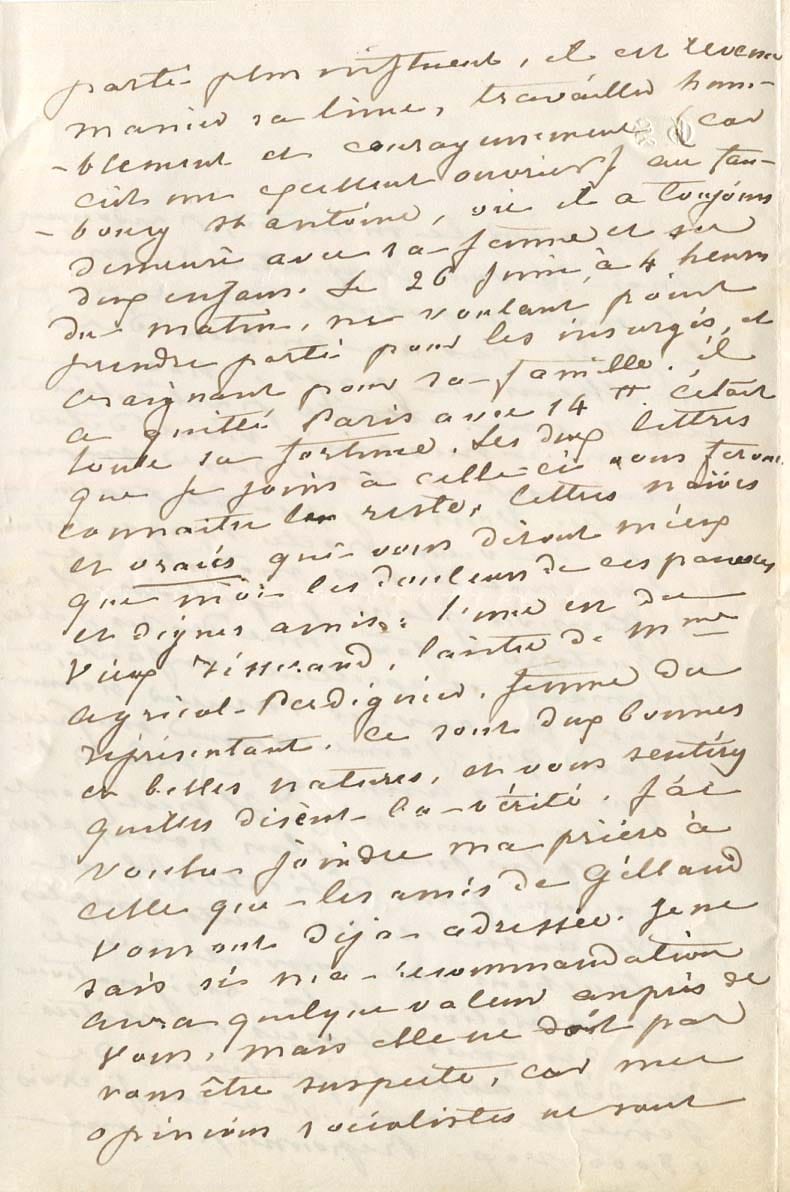 parti plus influent, il est revenu
manier sa lime, travailler hum-
-blement et courageusement (car
c'est un excellent ouvrier) au fau-
-bourg st antoine, où il a toujours
demeuré avec sa femme et ses
deux enfans. Le 26 juin, à 4 heures
du matin, ne voulant point
prendre parti pour les insurgés, et
craignant pour sa famille, il
a quitté Paris avec 14 tt. C'était
toute sa fortune. Les deux lettres
que je joins à celle-ci vous feront
connaître le reste, lettres naïves
et vraies qui vous diront mieux
que moi les douleurs de ces pauvres
et dignes amis: l'une est du
vieux Tisserand, l'autre de Mme
Agricol-Perdiguier, femme du
représentant. Ce sont deux bonnes
et belles natures, et vous sentirez
qu'elles disent la vérité. J'ai
voulu joindre ma prière à
celle que les amis de Gilland
vous ont déjà adressée. Je ne
sais si ma recommandation
aura quelque valeur auprès de
vous, mais elle ne doit pas
vous être suspecte, car mes
opinions socialistes ne sont